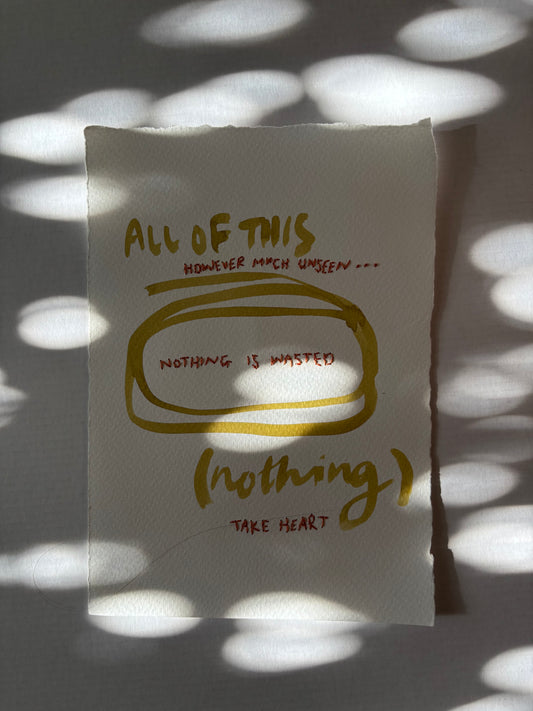 ALL OF THIS
HOWEVER MUCH UNSEEN...
NOTHING IS WASTED
(nothing)
TAKE HEART